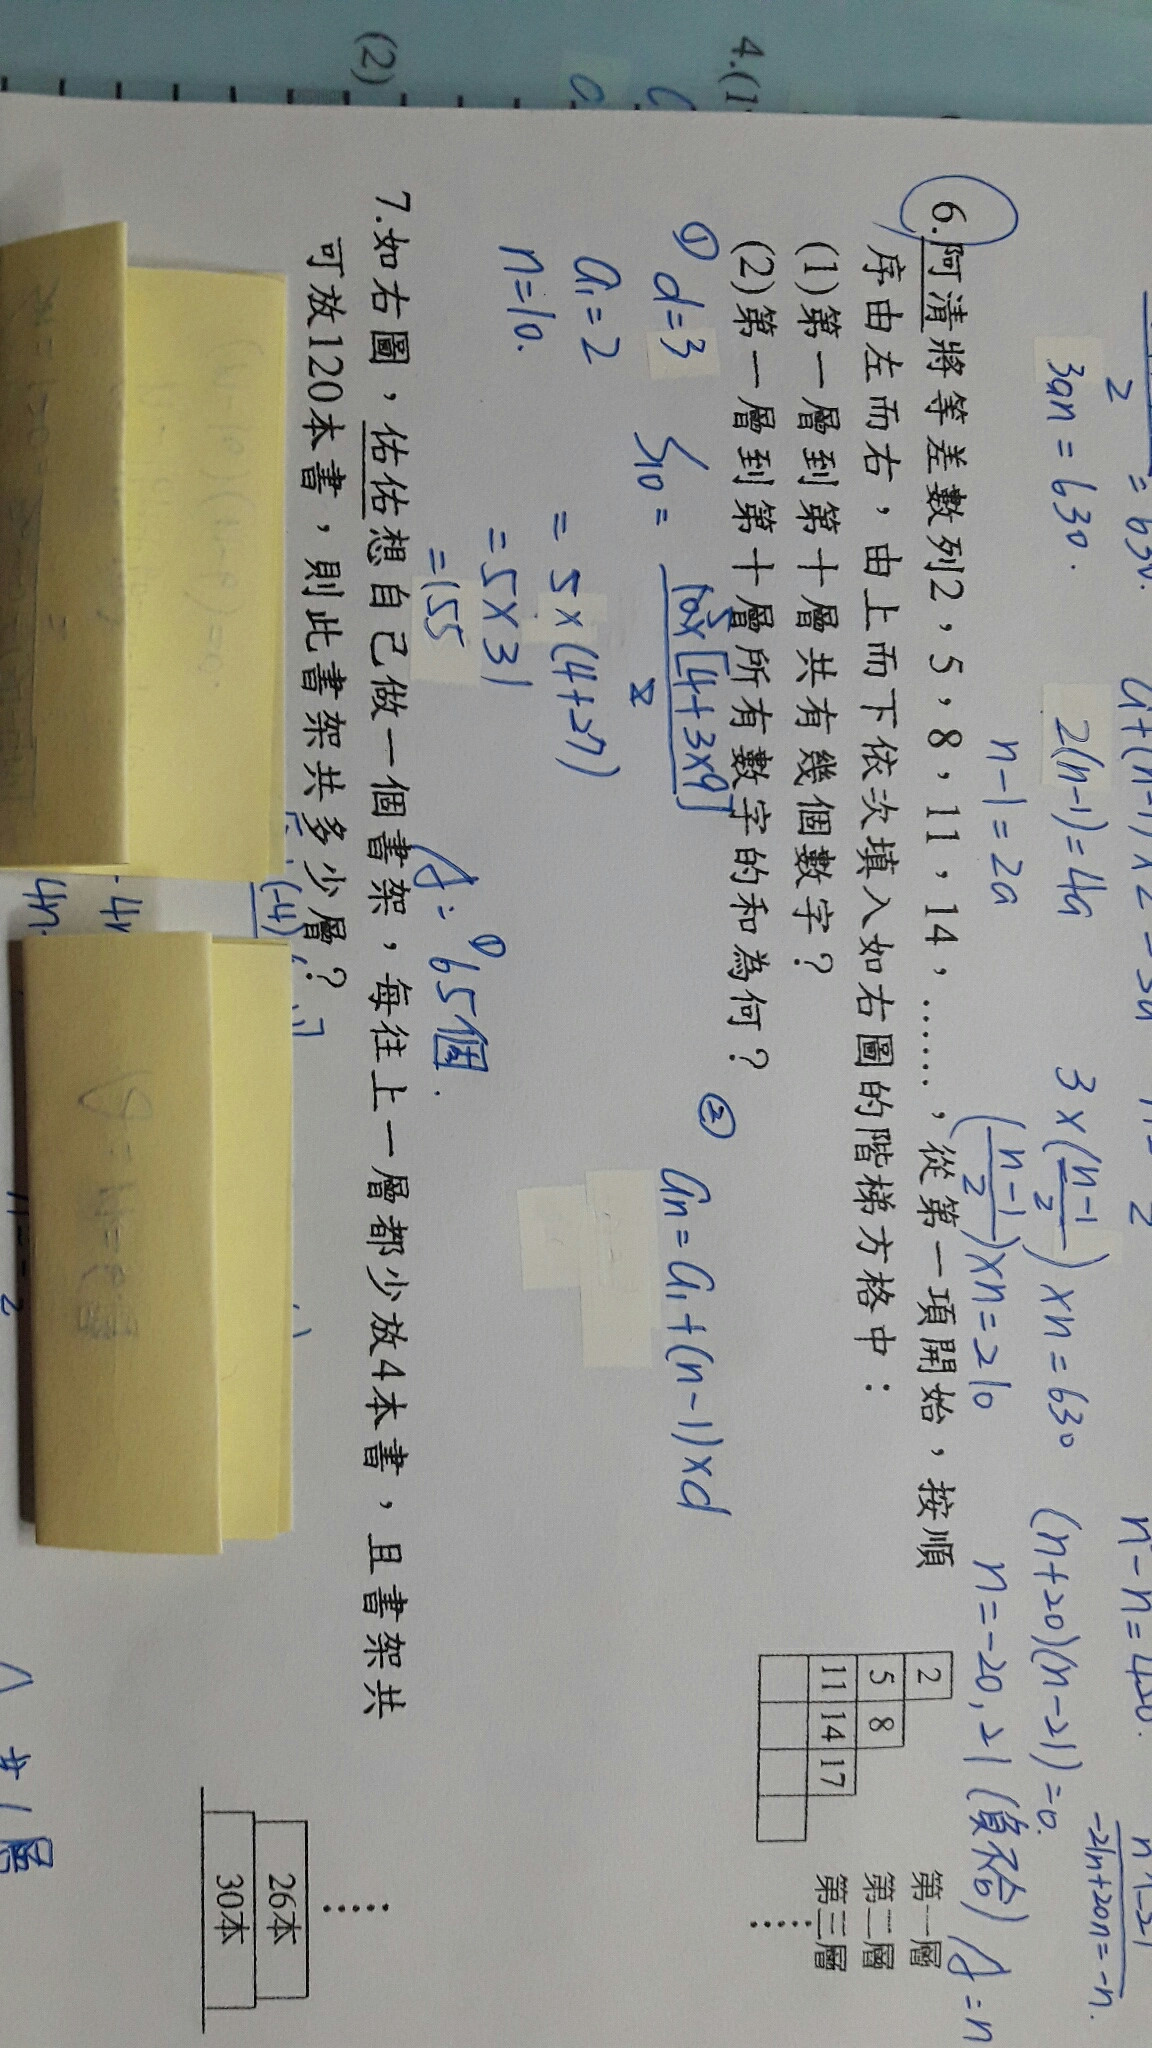 4.(1
(2)
3an = 630.
2(n-1)=4a
n-1=2a
3×(n-1/2)×n=630
(n-1/2)×n=210
(n+20)(n-21)=0.
n=-20,21(負不合)
-21n+20n=-n.
6.阿清將等差數列2,5,8,11,14,……,從第一項開始,按順
序由左而右,由上而下依次填入如右圖的階梯方格中:
(1)第一層到第十層共有幾個數字?
(2)第一層到第十層所有數字的和為何?
2 第一層
5 8 第二層
11 14 17 第三層
① d=3
a₁=2
n=10.
S₁₀=
= 5×(4+27)
=5×31
=155
A:①65個.
② an=a₁+(n-1)×d
7.如右圖,佑佑想自己做一個書架,每往上一層都少放4本書,且書架共
可放120本書,則此書架共多少層?
26本
30本